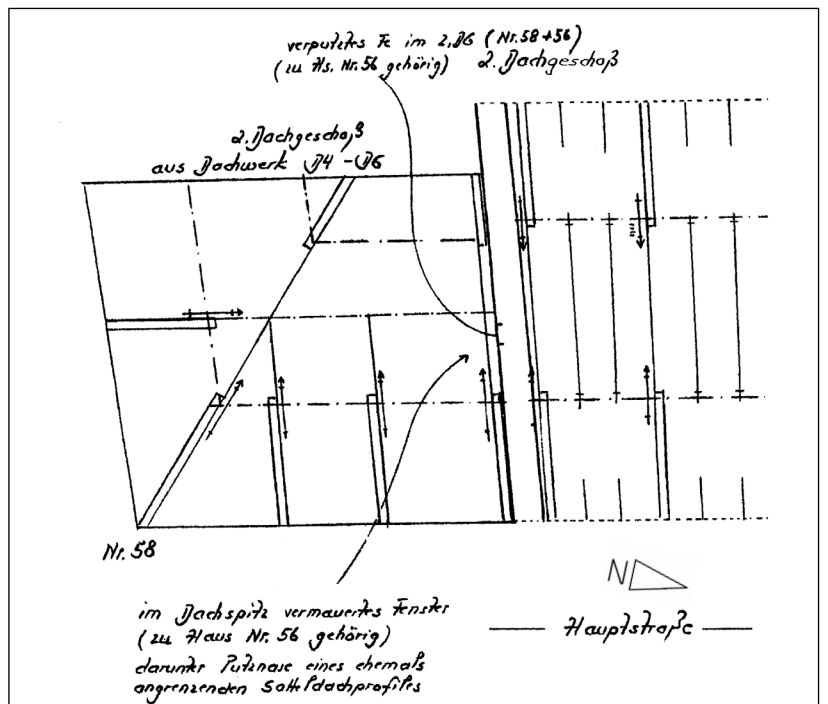 verputztes Fe im 2.DG (Nr.58+56)
(zu Hs. Nr.56 gehörig) 2. Dachgeschoß
2. Dachgeschoß
aus Dachwerk D4 - D6
Nr. 58
im Dachspitz vermauertes Fenster
(zu Haus Nr. 56 gehörig)
darunter Putznase eines ehemals
angrenzenden Satteldachprofiles
N
Hauptstraße